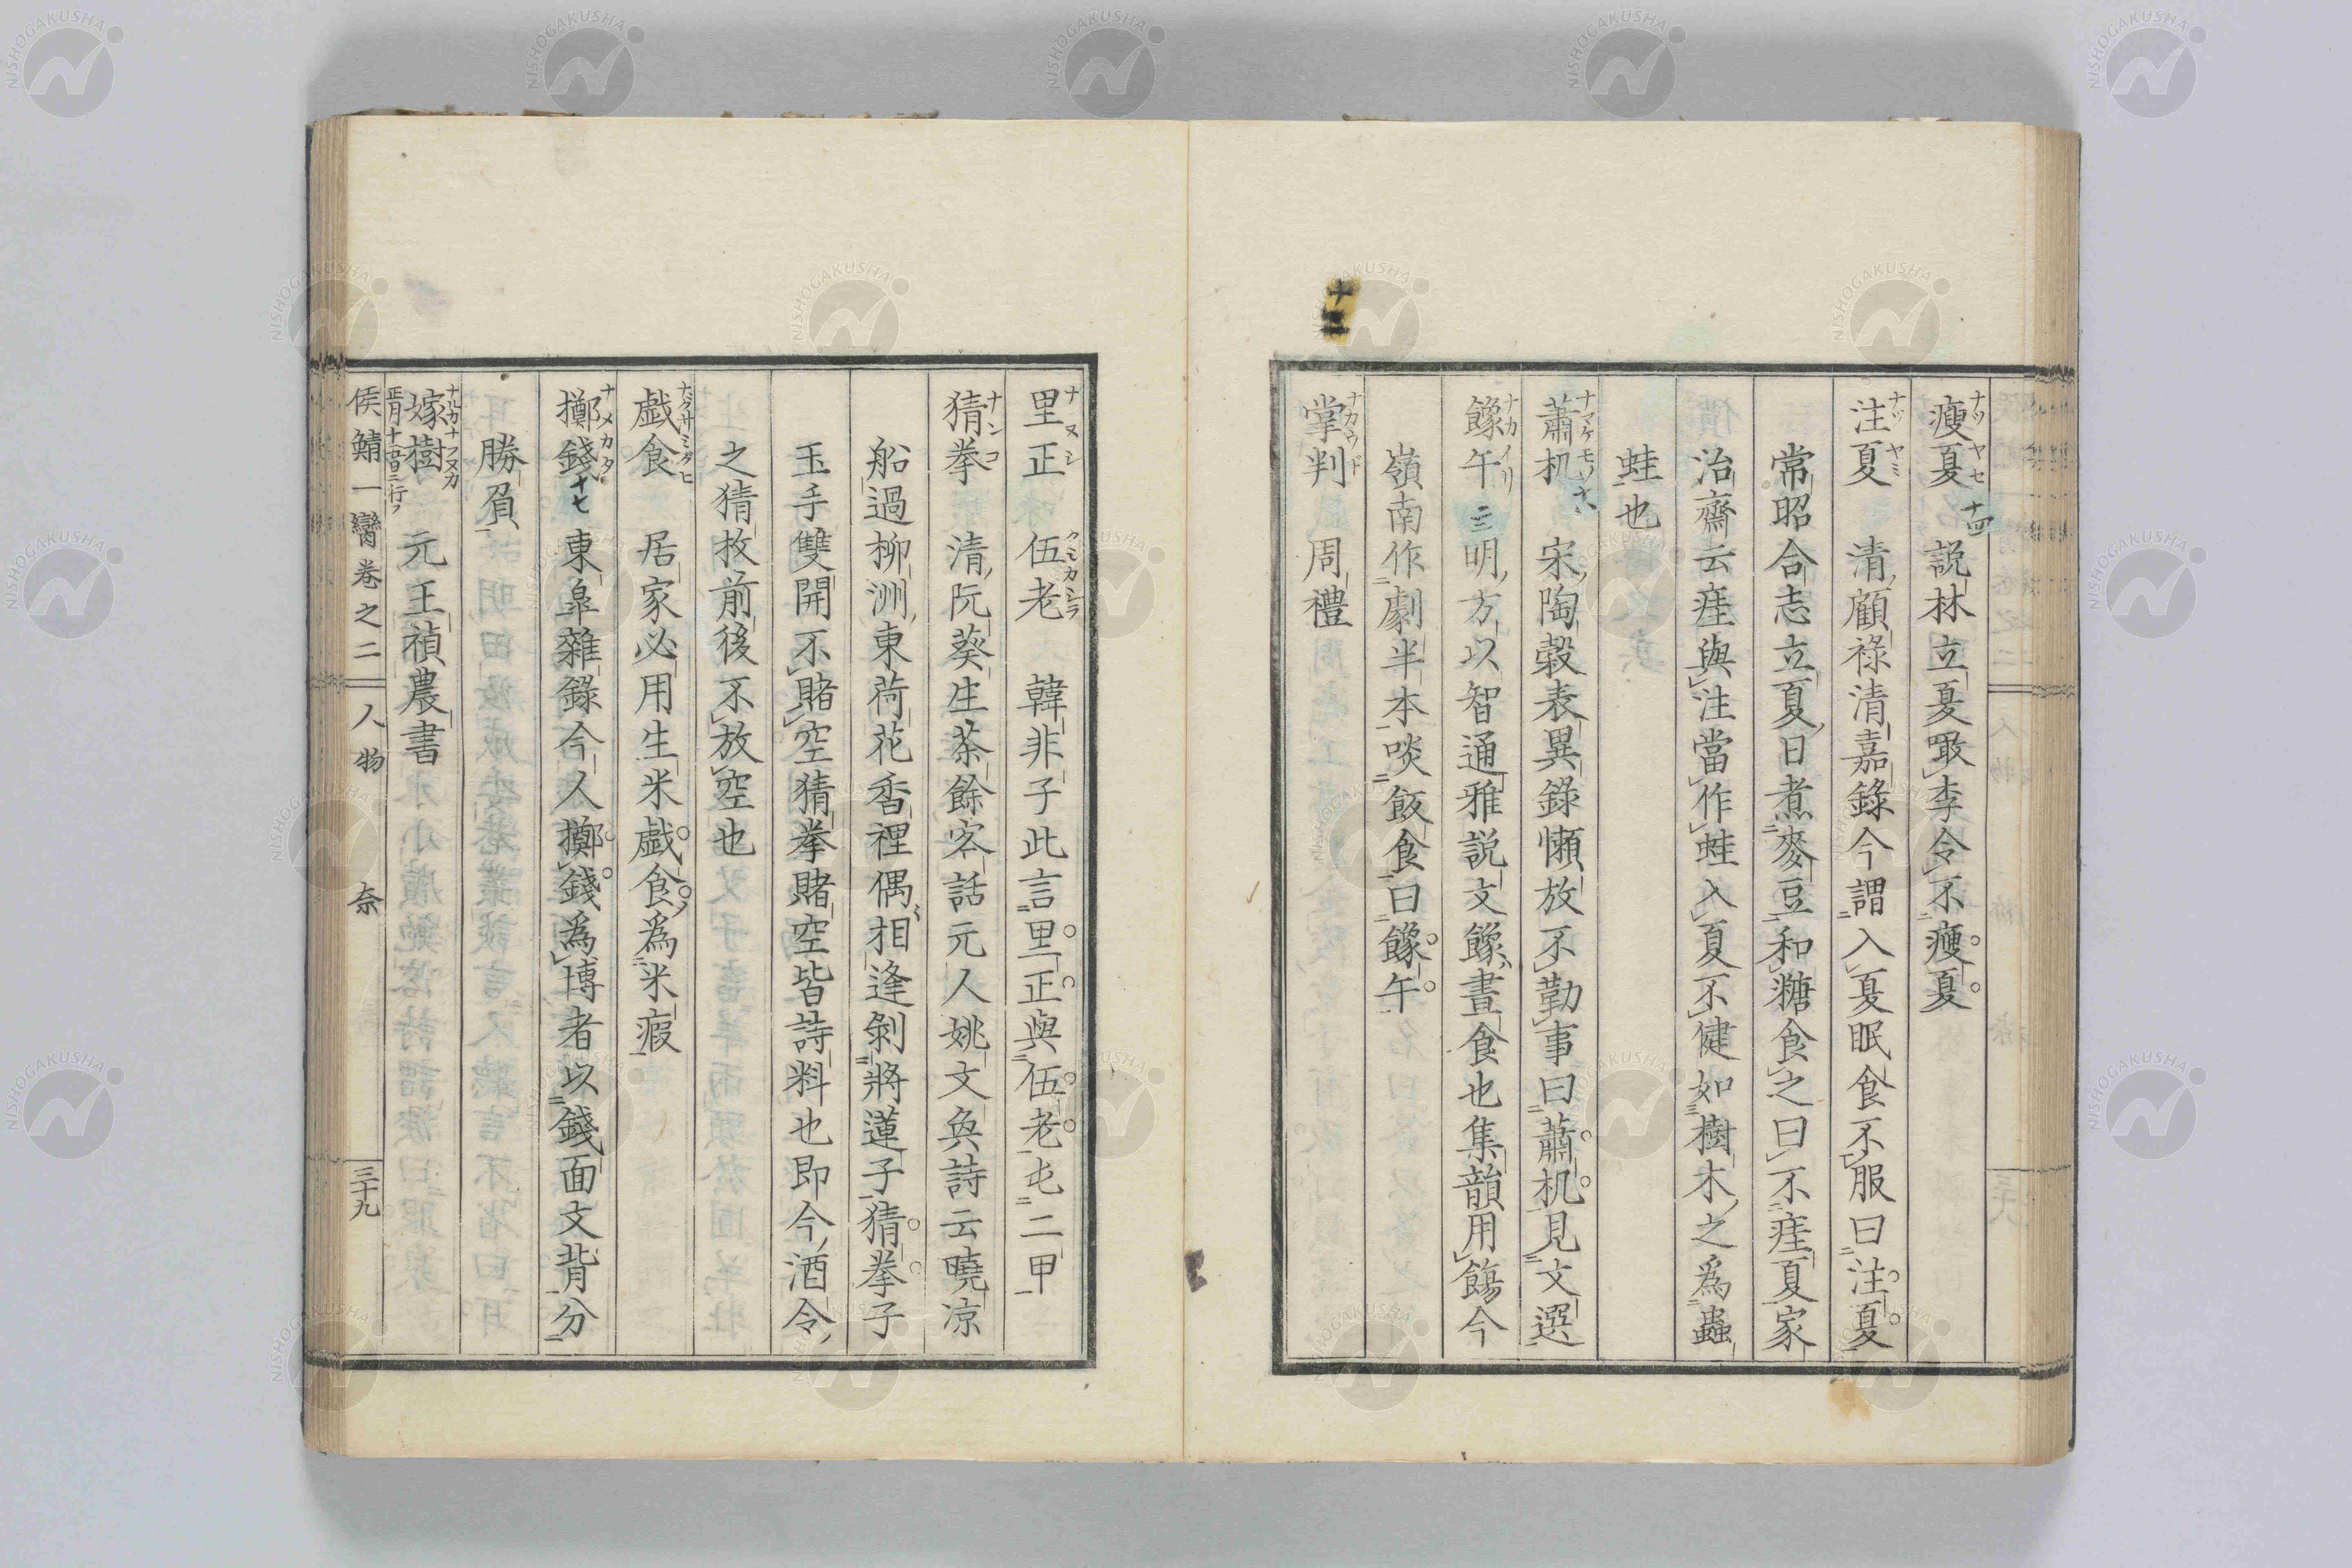 十三
瘦夏 十四 説林立夏啜李令不瘦夏
ナツヤセ
注夏 清顧祿清嘉錄今謂入夏眠食不服曰注夏
ナツヤミ
常昭合志立夏日煮麥豆和糖食之曰不疰夏家
治齋云疰與注當作蛀入夏不健如樹木之爲蟲
蛀也
蕭机 宋陶穀表異錄懶放不勤事曰蕭机見文選
ナマケモノ
餯午 三 明方以智通雅説文餯晝食也集韻用餳今
ナカイリ
嶺南作劇半本啖飯食曰餯午
掌判 周禮
ナカウド
里正 伍老 韓非子此言里正與伍老屯二甲
ナヌシ クミカシラ
猜拳 清阮葵生茶餘客話元人姚文奐詩云曉凉
ナンコ
船過柳洲東荷花香裡偶相逢剝將蓮子猜拳子
玉手雙開不賭空猜拳賭空皆詩料也即今酒令
之猜枚前後不放空也
戯食 居家必用生米戯食爲米瘕
擲錢 十七 東皐雜錄今人擲錢爲博者以錢面文背分
ナメカタ
勝負
嫁樹 元王禎農書
侯鯖一臠卷之二 人物 奈 三十九
NISHOGAKUSHA